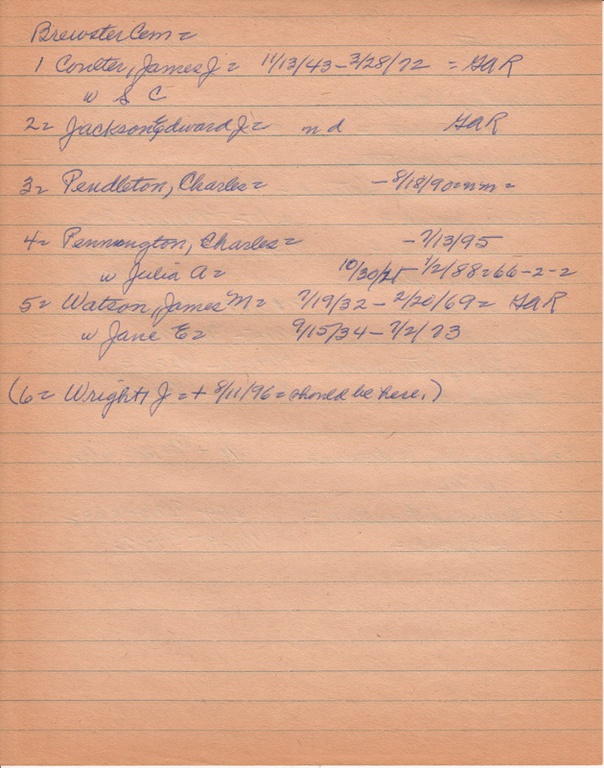 Brewster Cem =
1 Coulter, James J = 11/13/43 - 3/28/72 = GAR
w S C
2 = Jackson, Edward J = n d GAR
3 = Pendleton, Charles = - 8/18/90 = nm =
4 = Pennington, Charles = - 7/13/95
w Julia A = 10/30/21 - 1/2/88 = 66-2-2
5 = Watson, James M = 7/19/32 - 2/20/69 = GAR
w Jane E = 9/15/34 - 7/2/73
(6 = Wright, J = + 8/11/96 = should be here.)